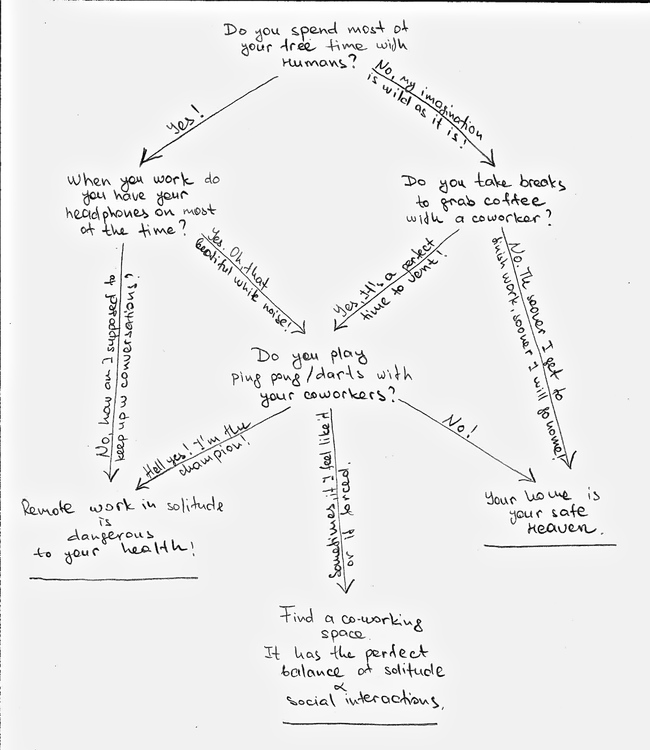 Do you spend most of
your free time with
Humans?
Yes!
No, my imagination
is wild as it is!
When you work do
you have your
headphones on most
of the time?
Do you take breaks
to grab coffee
with a coworker?
No, how am I supposed to
keep up w conversations?
Yes. Oh, that
beautiful white noise!
Yes. It's a perfect
time to vent!
No. The sooner I get to
finish work, sooner I will go home!
Do you play
ping pong/darts with
your coworkers?
Hell yes! I'm the
champion!
Sometimes if I feel like it
or if forced.
No!
Remote work in solitude
is
dangerous
to your health!
Your home is
your safe
Heaven.
Find a co-working
space.
It has the perfect
balance of solitude
&
social interactions.